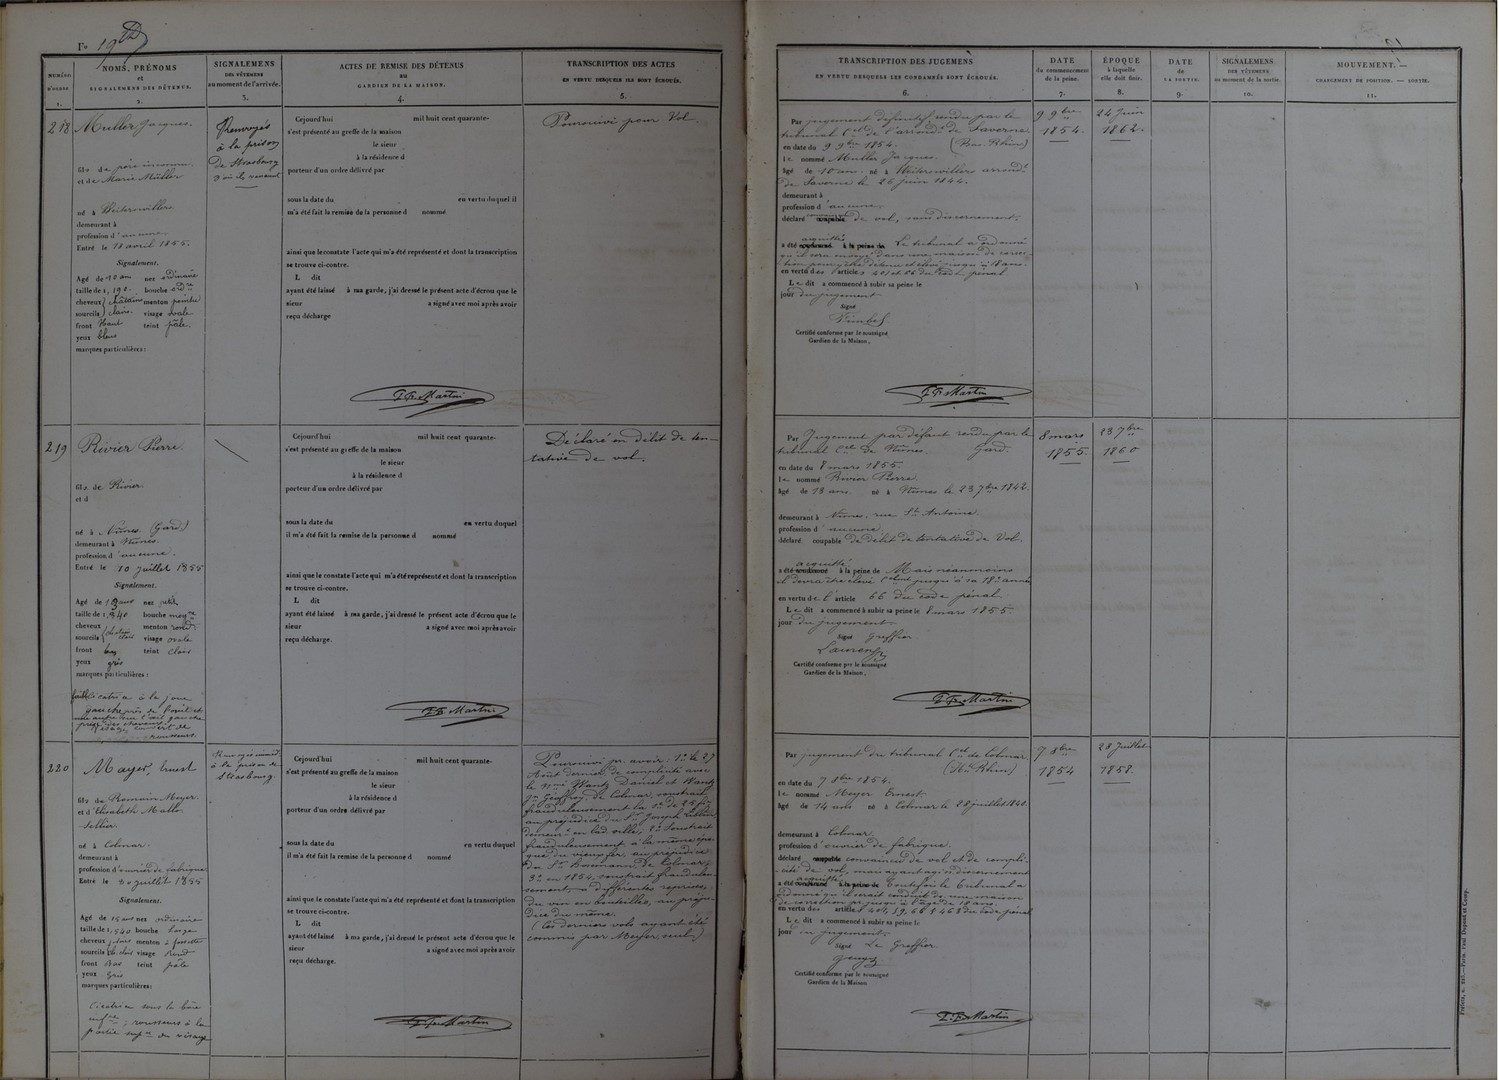 F° 19
NUMÉRO D'ORDRE 1.
NOMS, PRÉNOMS
et
SIGNALEMENS DES DÉTENUS.
2.
SIGNALEMENS
DES VÊTEMENS
au moment de l'arrivée.
3.
ACTES DE REMISE DES DÉTENUS
AU
GARDIEN DE LA MAISON.
4.
TRANSCRIPTION DES ACTES
EN VERTU DESQUELS ILS SONT ÉCROUÉS.
5.
TRANSCRIPTION DES JUGEMENS
EN VERTU DESQUELS LES CONDAMNÉS SONT ÉCROUÉS.
6.
DATE
du commencement
de la peine.
7.
ÉPOQUE
à laquelle
elle doit finir.
8.
DATE
de
LA SORTIE.
9.
SIGNALEMENS
DES VÊTEMENS
au moment de la sortie.
10.
MOUVEMENT.
CHANGEMENT DE POSITION. — SORTIE.
11.
218 Muller Jacques.
fils de père inconnu
et de Marie Müller
né à Weiterswiller
demeurant à
profession d'aucune
Entré le 18 avril 1855.
Signalement.
Agé de 10 ans nez ordinaire
taille de 1, 190. bouche ord.re
cheveux châtains menton pointu
sourcils clairs. visage ovale
front haut teint pâle.
yeux bleus
marques particulières:
Renvoyés
à la prison
de Strasbourg
Cejourd'hui mil huit cent quarante-
s'est présenté au greffe de la maison
le sieur
à la résidence d
porteur d'un ordre délivré par
sous la date du en vertu duquel il
m'a été fait le remise de la personne d nommé
ainsi que le constate l'acte qui m'a été représenté et dont la transcription
se trouve ci-contre.
L dit
ayant été laissé à ma garde, j'ai dressé le présent acte d'écrou que le
sieur a signé avec moi après avoir
reçu décharge
Martin
Poursuivi pour Vol
Par jugement définitif rendu par le
tribunal C.el de l'arrond.t de Saverne
en date du 9 9bre 1854. (Bas-Rhin)
le nommé Muller Jacques
âgé de 10 ans né à Weiterswiller arrond.t
de Saverne le 26 juin 1844.
demeurant à
profession d'aucune
déclaré coupable de vol, sans discernement,
a été acquitté condamné à la peine de Le tribunal a ordonné
qu'il sera envoyé dans une maison de correc-
tion pour y être détenu et élevé jusqu'à 18 ans.
en vertu des articles 401 et 66 du Code pénal
Le dit a commencé à subir sa peine le
jour du jugement
Signé
Certifié conforme par le soussigné
Gardien de la Maison,
Martin
9 9bre
1854.
24 Juin
1862.
219 Rivier Pierre
fils de Rivier
et d
né à Nîmes (Gard)
demeurant à Nîmes.
profession d'aucune.
Entré le 10 juillet 1855
Signalement.
Agé de 13 ans nez petit
taille de 1, 340 bouche moy.ne
cheveux menton rond
sourcils visage ovale
front bas teint clair
yeux gris
marques particulières:
faible cicatrice à la joue
gauche près de
une autre sur l'œil gauche
près des cheveux.
Visage couvert de
rousseurs.
Cejourd'hui mil huit cent quarante-
s'est présenté au greffe de la maison
le sieur
à la résidence d
porteur d'un ordre délivré par
sous la date du en vertu duquel
il m'a été fait la remise de la personne d nommé
ainsi que le constate l'acte qui m'a été représenté et dont la transcription
se trouve ci-contre.
L dit
ayant été laissé à ma garde, j'ai dressé le présent acte d'écrou que le
sieur a signé avec moi après avoir
reçu décharge.
Martin
Déclaré en délit de ten-
tative de vol.
Par Jugement par défaut rendu par le
tribunal C.el de Nîmes. Gard.
en date du 8 mars 1855.
le nommé Rivier Pierre
âgé de 13 ans né à Nîmes le 23 7bre 1842.
demeurant à Nîmes, rue St. Antoine
profession d'aucune.
déclaré coupable de délit de tentative de Vol.
a été acquitté condamné à la peine de Mais néanmoins
il devra être élevé jusqu'à sa 18e année
en vertu de l'article 66 du code pénal
Le dit a commencé à subir sa peine le 8 mars 1855.
jour du jugement
Signé Greffier
Certifié conforme par le soussigné
Gardien de la Maison,
Martin
8 mars
1855.
23 7bre
1860
220 Mayer, Ernest
fils de Romain Meyer
et d'Elisabeth
Sellier
né à Colmar.
demeurant à
profession d'ouvrier de fabrique
Entré le juillet 1855
Signalement.
Agé de ans nez ordinaire
taille de 1, 540 bouche large
cheveux menton à fossette
sourcils visage rond
front teint pâle
yeux gris
marques particulières:
Cicatrice sous la
inf.re; rousseurs à la
partie sup.re du visage
à la prison de
Strasbourg.
Cejourd'hui mil huit cent quarante-
s'est présenté au greffe de la maison
le sieur
à la résidence d
porteur d'un ordre délivré par
sous la date du en vertu duquel
il m'a été fait la remise de la personne d nommé
ainsi que le constate l'acte qui m'a été représenté et dont la transcription
se trouve ci-contre.
L dit
ayant été laissé à ma garde, j'ai dressé le présent acte d'écrou que le
sieur a signé avec moi après avoir
reçu décharge.
Martin
Poursuivi pr. avoir: 1° le 27
Août dernier de complicité avec
le nommé Wantz Daniel et Wantz
Geoffroy de Colmar, soustrait
frauduleusement la de 25 f
au préjudice du Sr. Joseph
demeurt en lad. ville, 2° Soustrait
frauduleusement à la même épo-
que du vieux fer, au préjudice
du Sr. de Colmar,
3° en 1854, soustrait fraudulen-
sement à différentes reprises,
du vin en bouteilles, au préju-
dice du même.
(Les derniers vols ayant été
commis par Meyer, seul)
Par jugement du tribunal C.el de Colmar
(Ht. Rhin)
en date du 7 8bre 1854.
le nommé Meyer Ernest
âgé de 14 ans né à Colmar le 28 juillet 1840.
demeurant à Colmar
profession d'ouvrier de fabrique.
déclaré coupable convaincu de vol et de compli-
cité de vol, mais ayant agi sans discernement
a été acquitté condamné à la peine de Toutefois le Tribunal a
ordonné qu'il serait conduit ds. une maison
de correction pr. jusqu'à l'âge de 18 ans.
en vertu des articles 401, 59, 66 & 463 du Code pénal
Le dit a commencé à subir sa peine le
jour du jugement.
Signé Le Greffier
Certifié conforme par le soussigné
Gardien de la Maison
Martin
7 8bre
1854
28 Juillet
1858.
Paris. Paul Dupont et Comp.